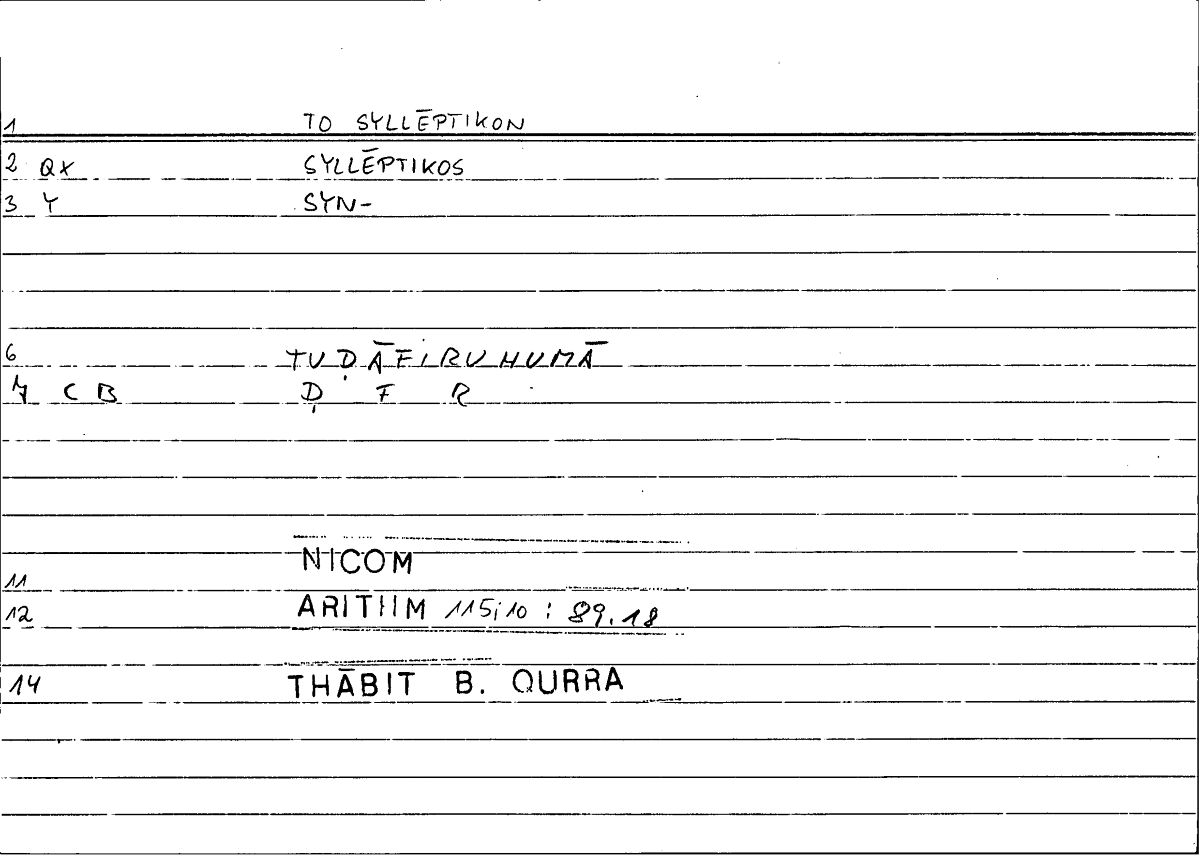 1 TO SYLLĒPTIKON
2 QX SYLLĒPTIKOS
3 Y SYN-
6 TUḌĀFIRUHUMĀ
7 C B Ḍ F R
11 NICOM
12 ARITHM 115;10 : 89.18
14 THĀBIT B. QURRA